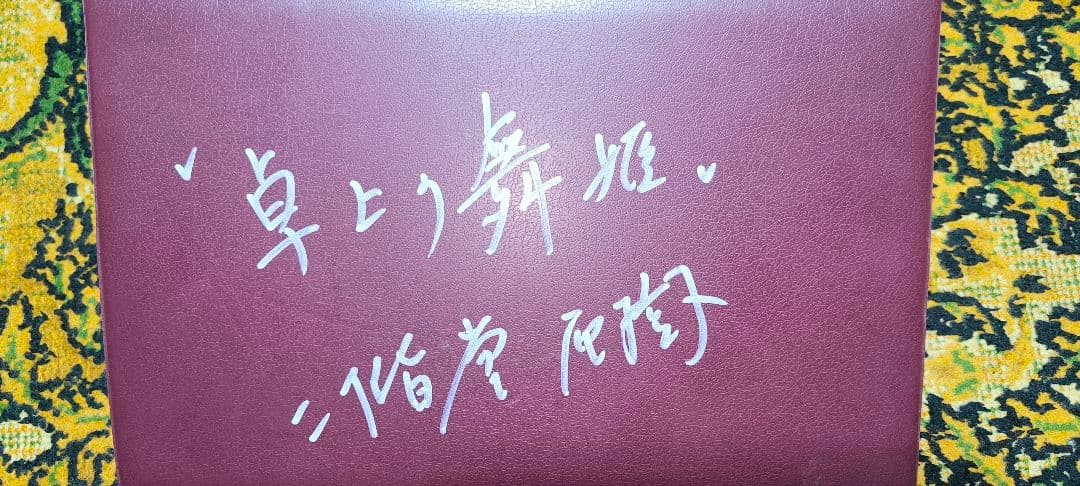 "卓上の舞姫"
二階堂 亜樹